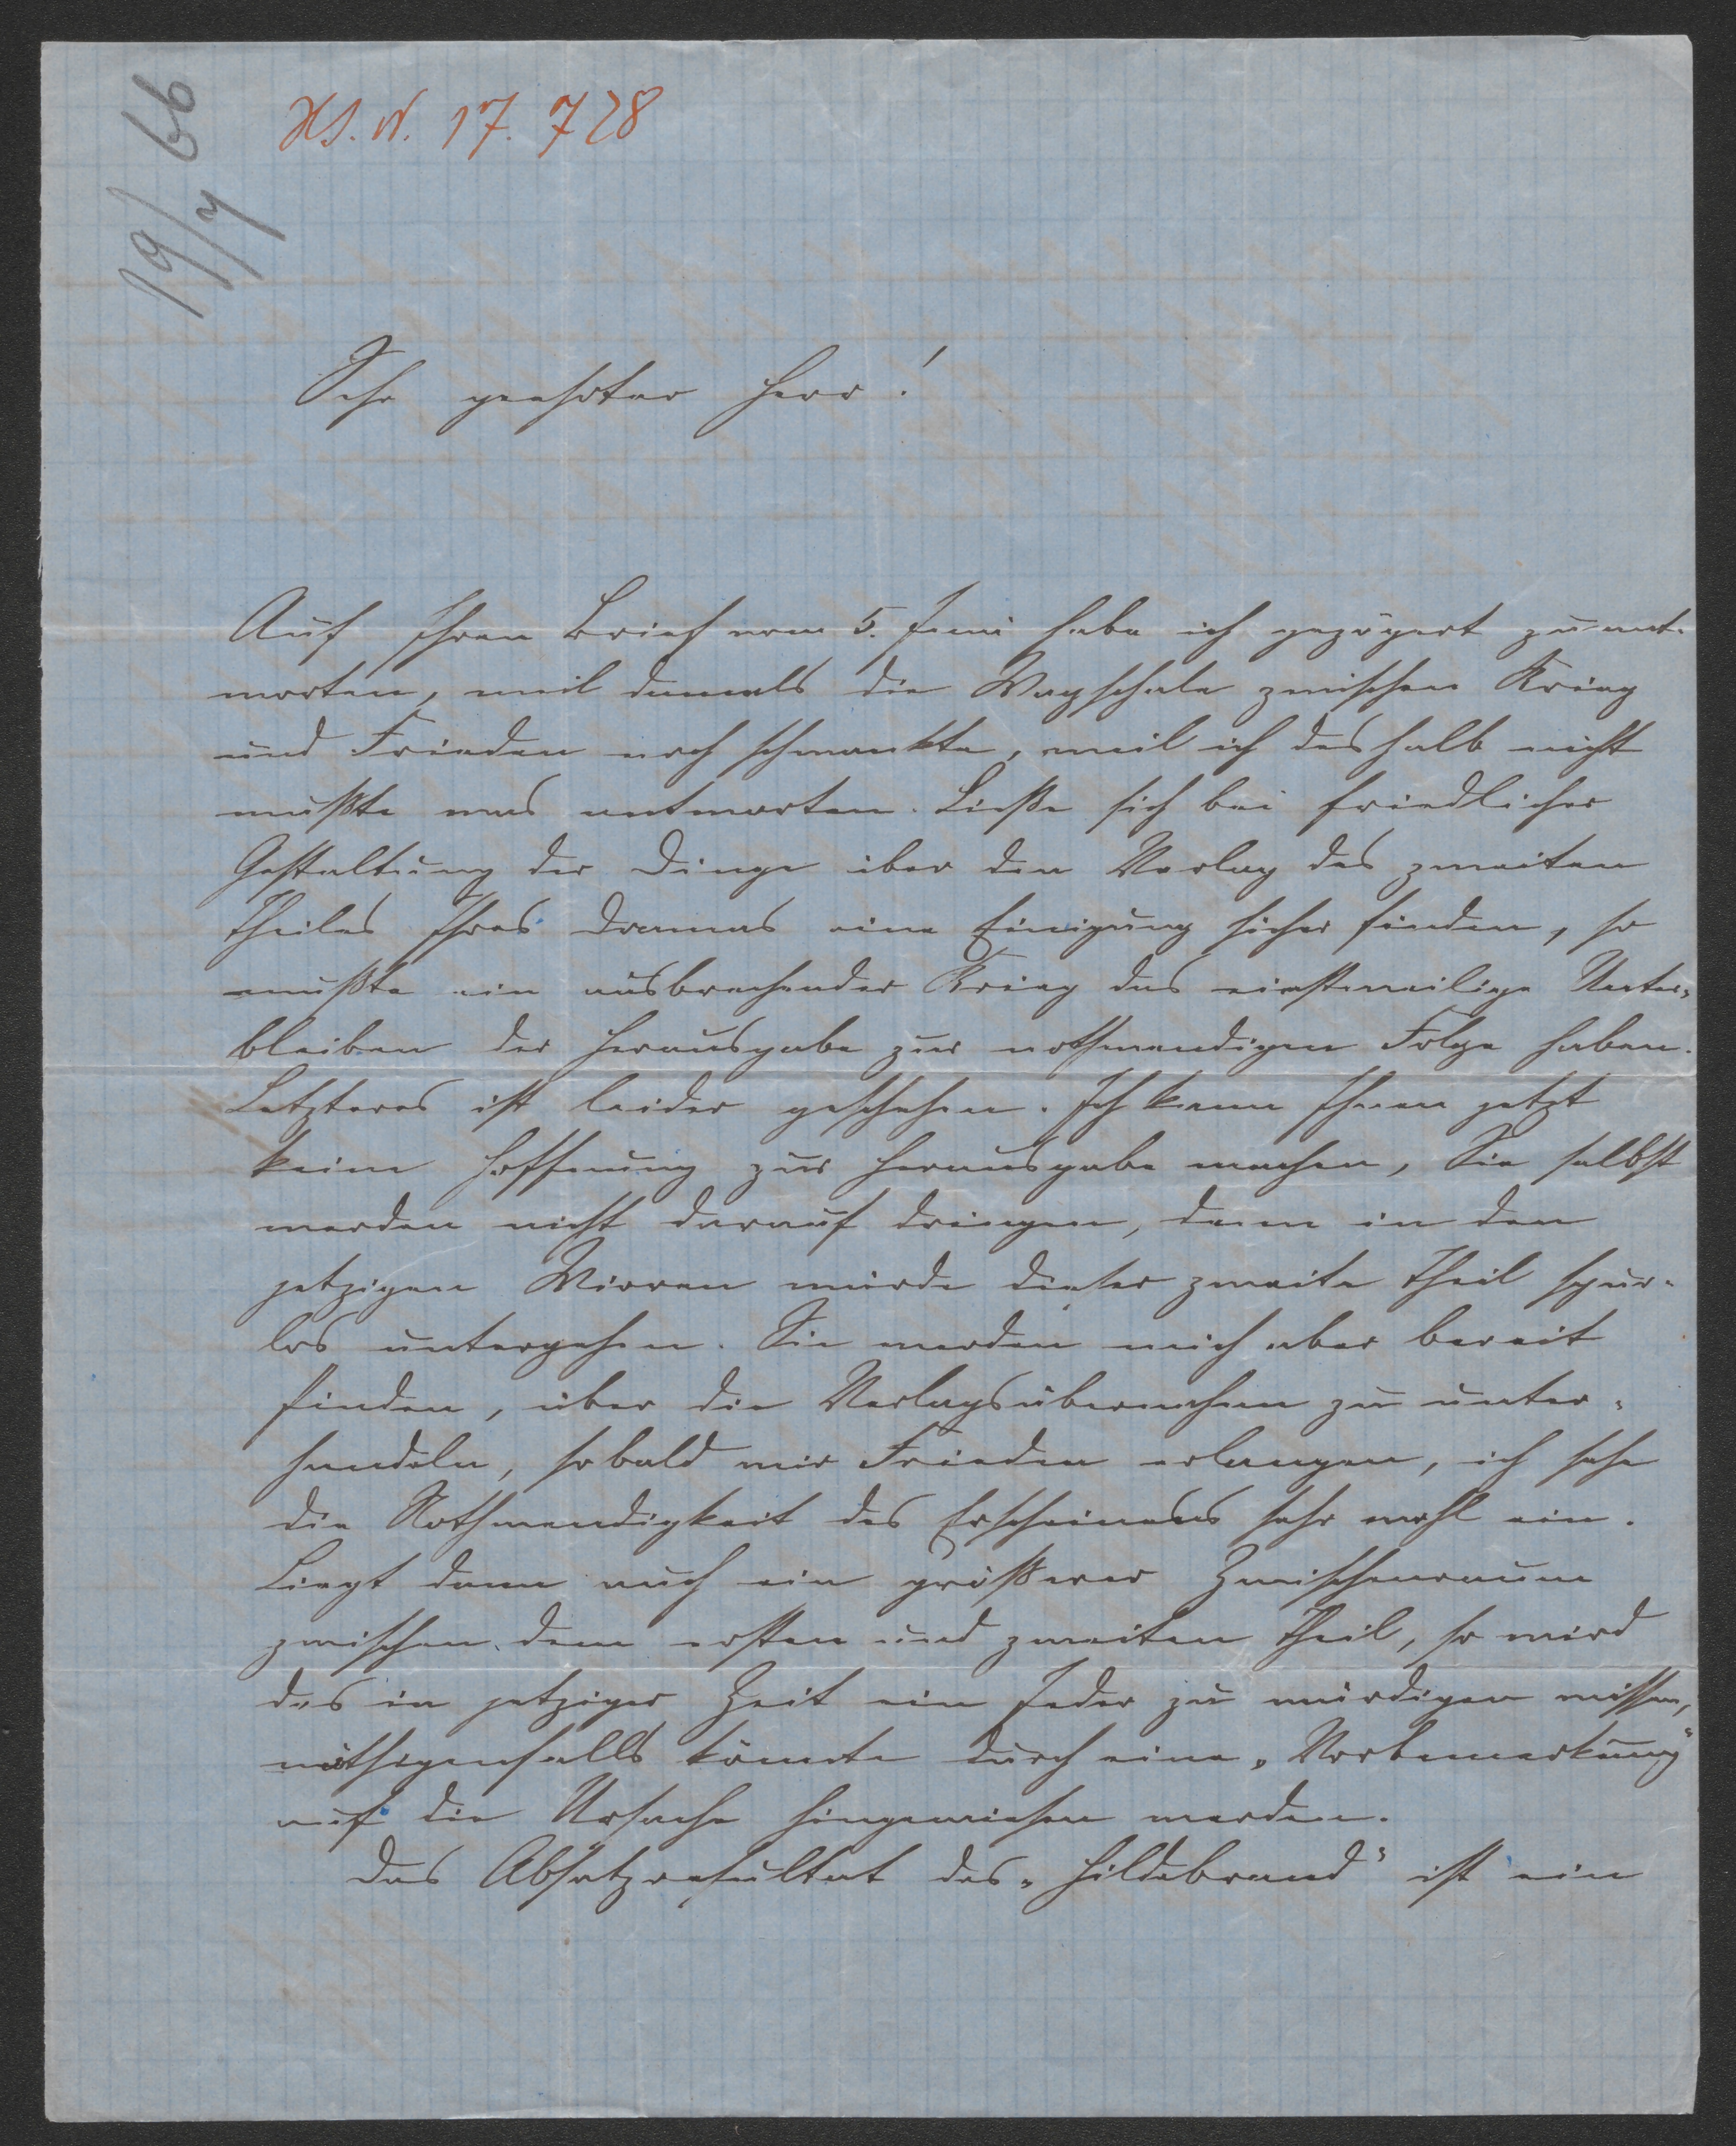 19/7 66
HS. N. 17.728
Sehr geehrter Herr!
Auf Ihren Brief vom 5. Juni habe ich gezögert zu ant-
worten, weil damals die Wagschale zwischen Krieg
und Frieden noch schwankte, weil ich deshalb nicht
wußte was antworten. Ließe sich bei friedlicher
Gestaltung der Dinge über den Verlag des zweiten
Theiles Ihres Dramas eine Einigung sicher finden, so
mußte ein ausbrechender Krieg das einstweilige Unter-
bleiben der Herausgabe zur nothwendigen Folge haben.
Letzteres ist leider geschehen. Ich kann Ihnen jetzt
keine Hoffnung zur Herausgabe machen, Sie selbst
werden nicht darauf dringen, denn in den
jetzigen Wirren würde dieser zweite Theil spur-
los untergehen. Sie werden mich aber bereit
finden, über die Verlagsübernahme zu unter-
handeln, sobald wir Frieden erlangen, ich sehe
die Nothwendigkeit des Erscheinens sehr wohl ein.
Liegt dann auch ein größerer Zwischenraum
zwischen dem ersten und zweiten Theil, so wird
das in jetziger Zeit ein Jeder zu würdigen wissen,
nöthigenfalls könnte durch eine „Vorbemerkung"
auf die Ursache hingewiesen werden.
Das Absatzresultat des „Hildebrand" ist ein